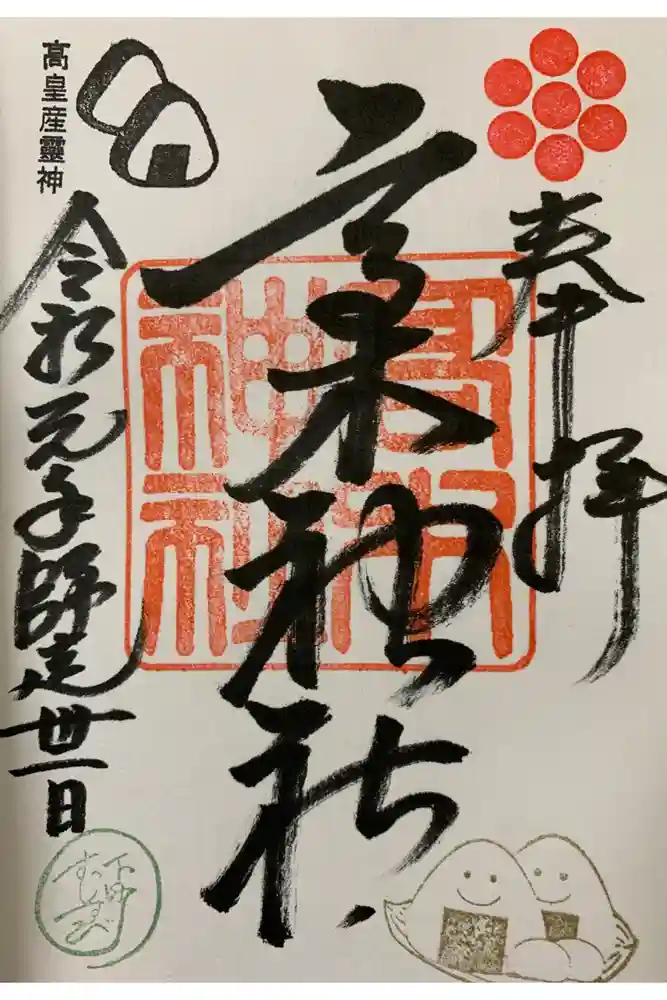 奉拝
高木神社
高木神社
高皇産靈神
令和元年師走丗一日